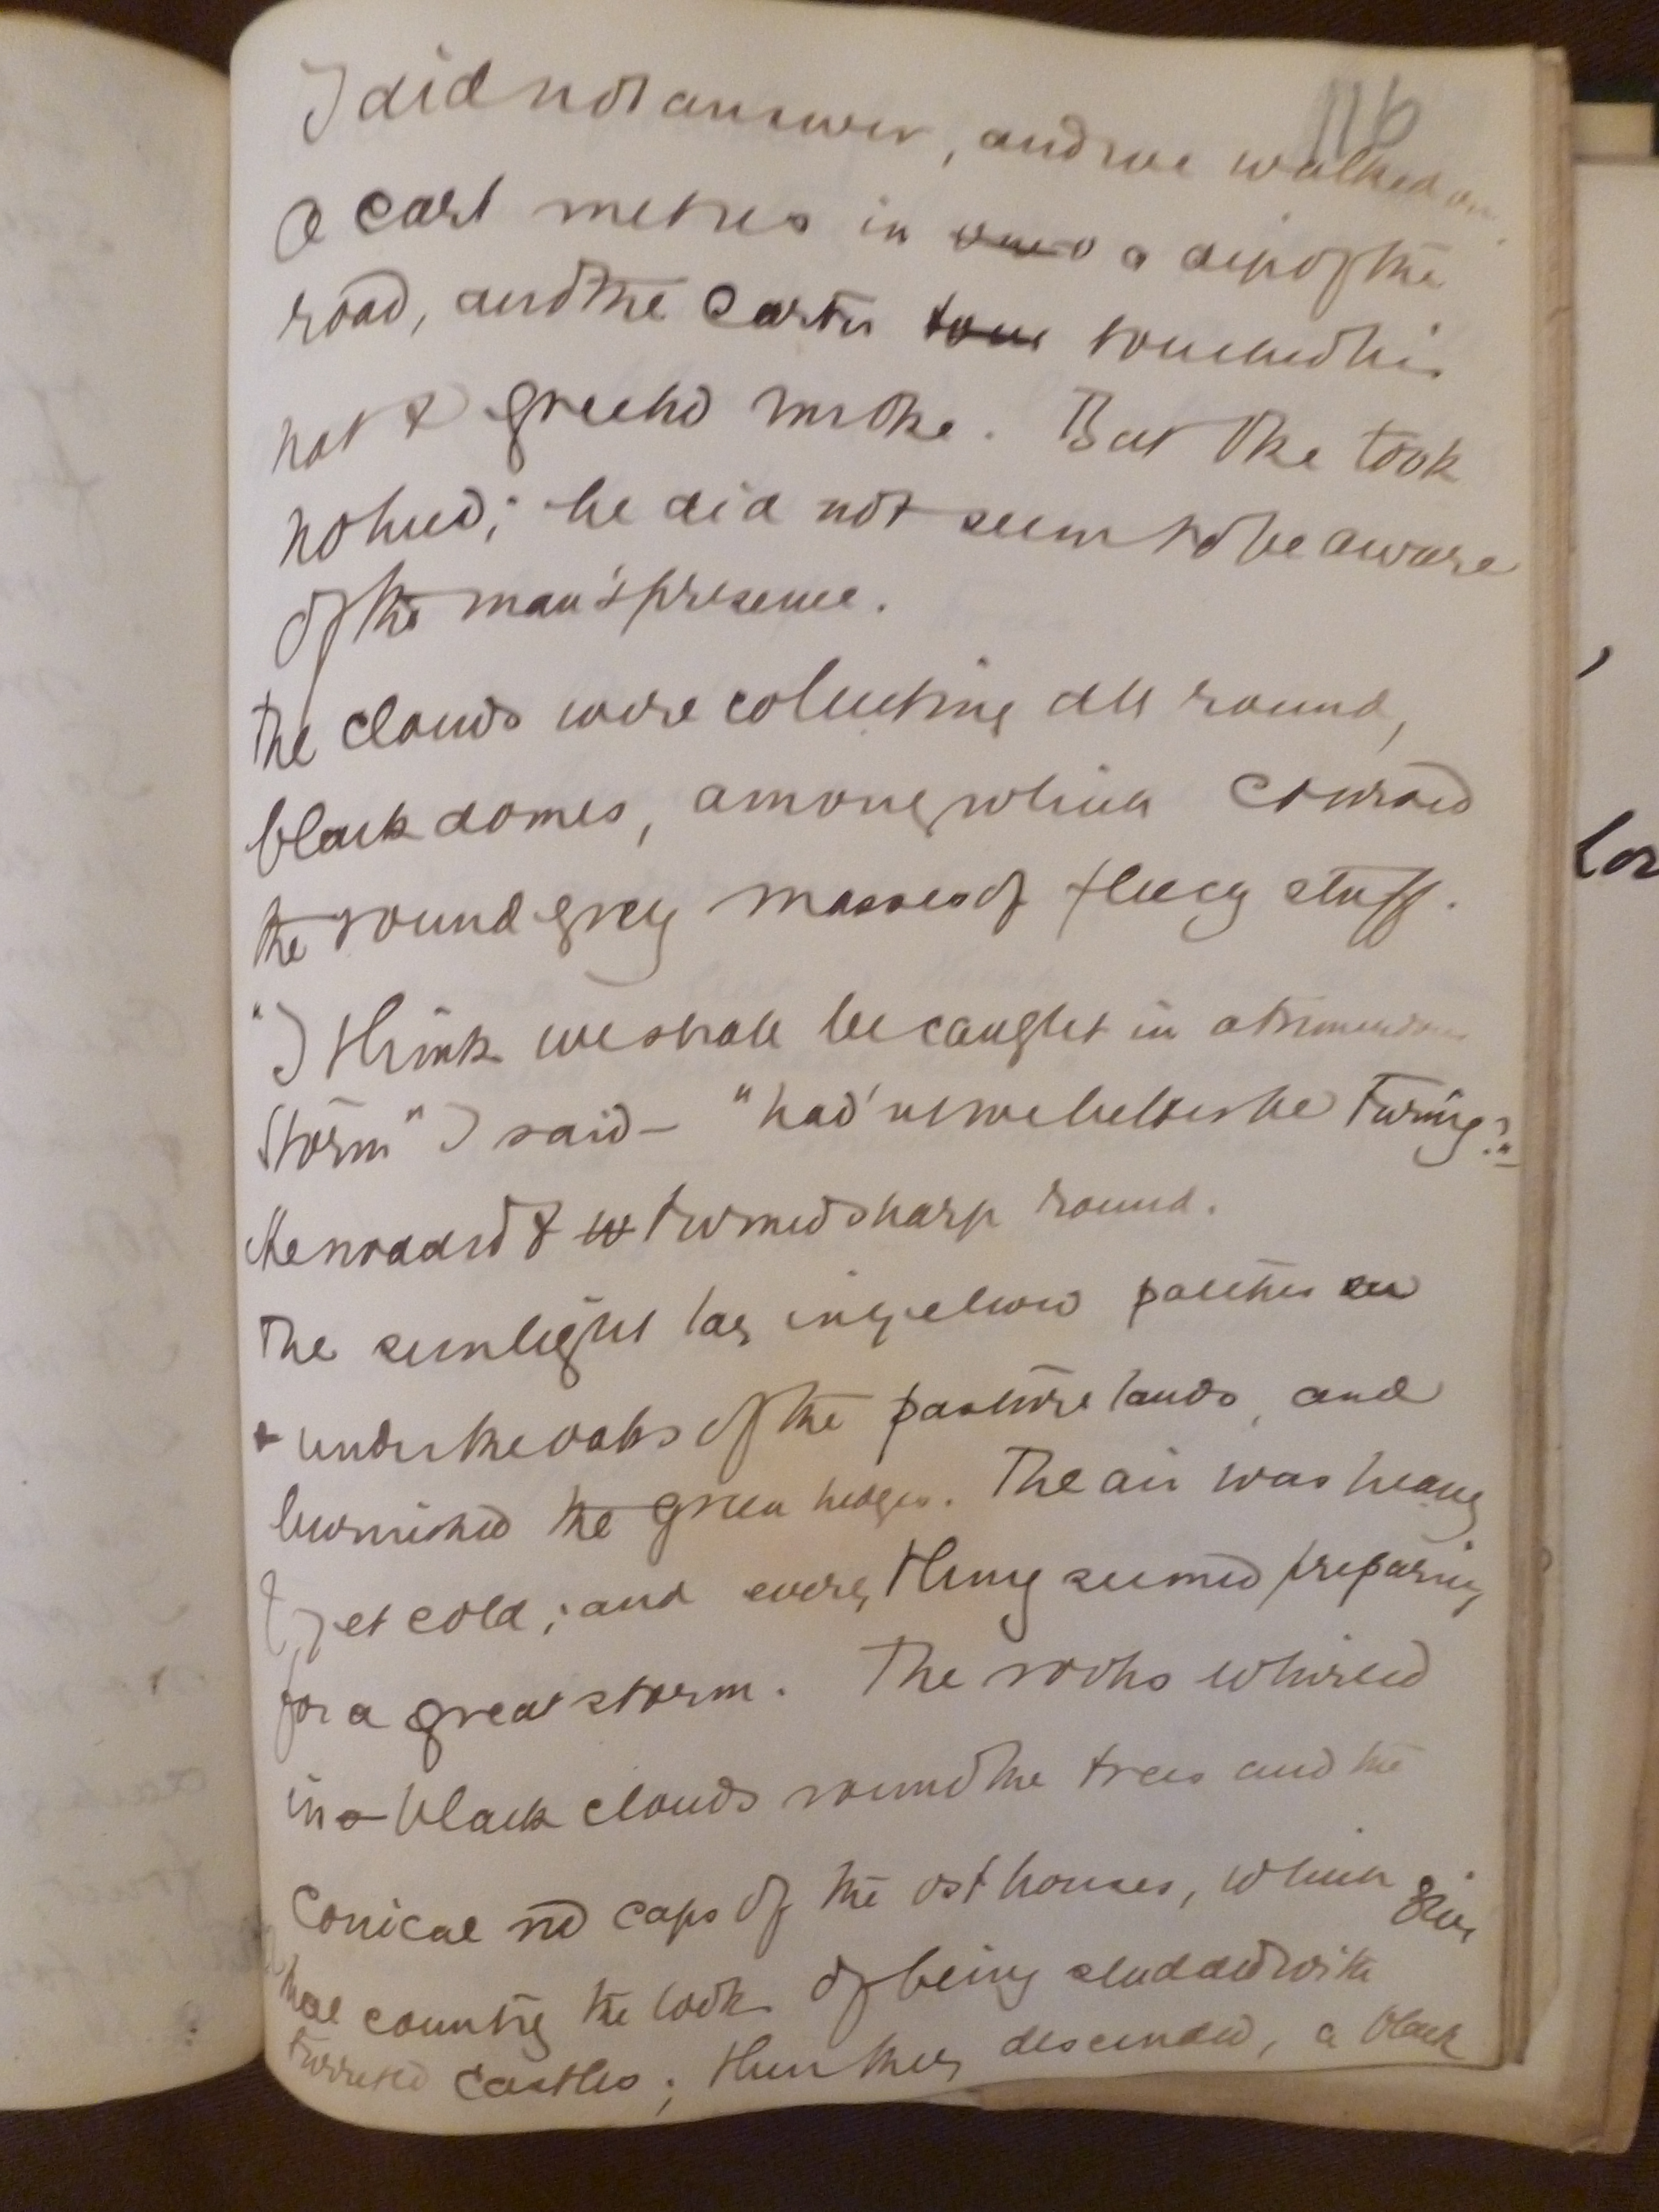 116
I did not answer, and we walked on.
A cart met us in a dip of the
road, and the carter touched his
hat & greeted Mr Oke. But Oke took
no heed; he did not seem to be aware
of the man's presence.
The clouds were collecting all round,
black domes, among which coursed
the round grey masses of fleecy stuff.
"I think we shall be caught in a tremendous
storm" I said — "had'nt we better be turning?"
He nodded & turned sharp round.
The sunlight lay in yellow patches
under the oaks of the pasture lands, and
burnished the green hedges. The air was heavy
& yet cold; and every thing seemed preparing
for a great storm. The rooks whirled
in black clouds round the trees and the
Conical red caps of the ost houses, which give
that country the look of being studded with
turreted castles; then they descended, a black
,